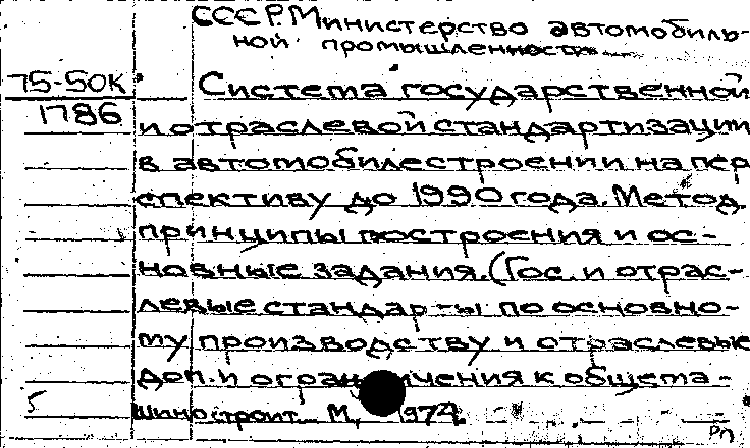 СССР. Министерство автомобиль-
ной промышленности
75-50К
1786
Система государственной
и отраслевой стандартизации
в автомобилестроении на пер
спективу до 1990 года. Метод.
принципы построения и ос-
новные задания. (Гос. и отрас-
левые стандар-ты по основно-
му производству и отраслевые
доп. и ограничения к общема-
шиностроит. М, 1974.
5